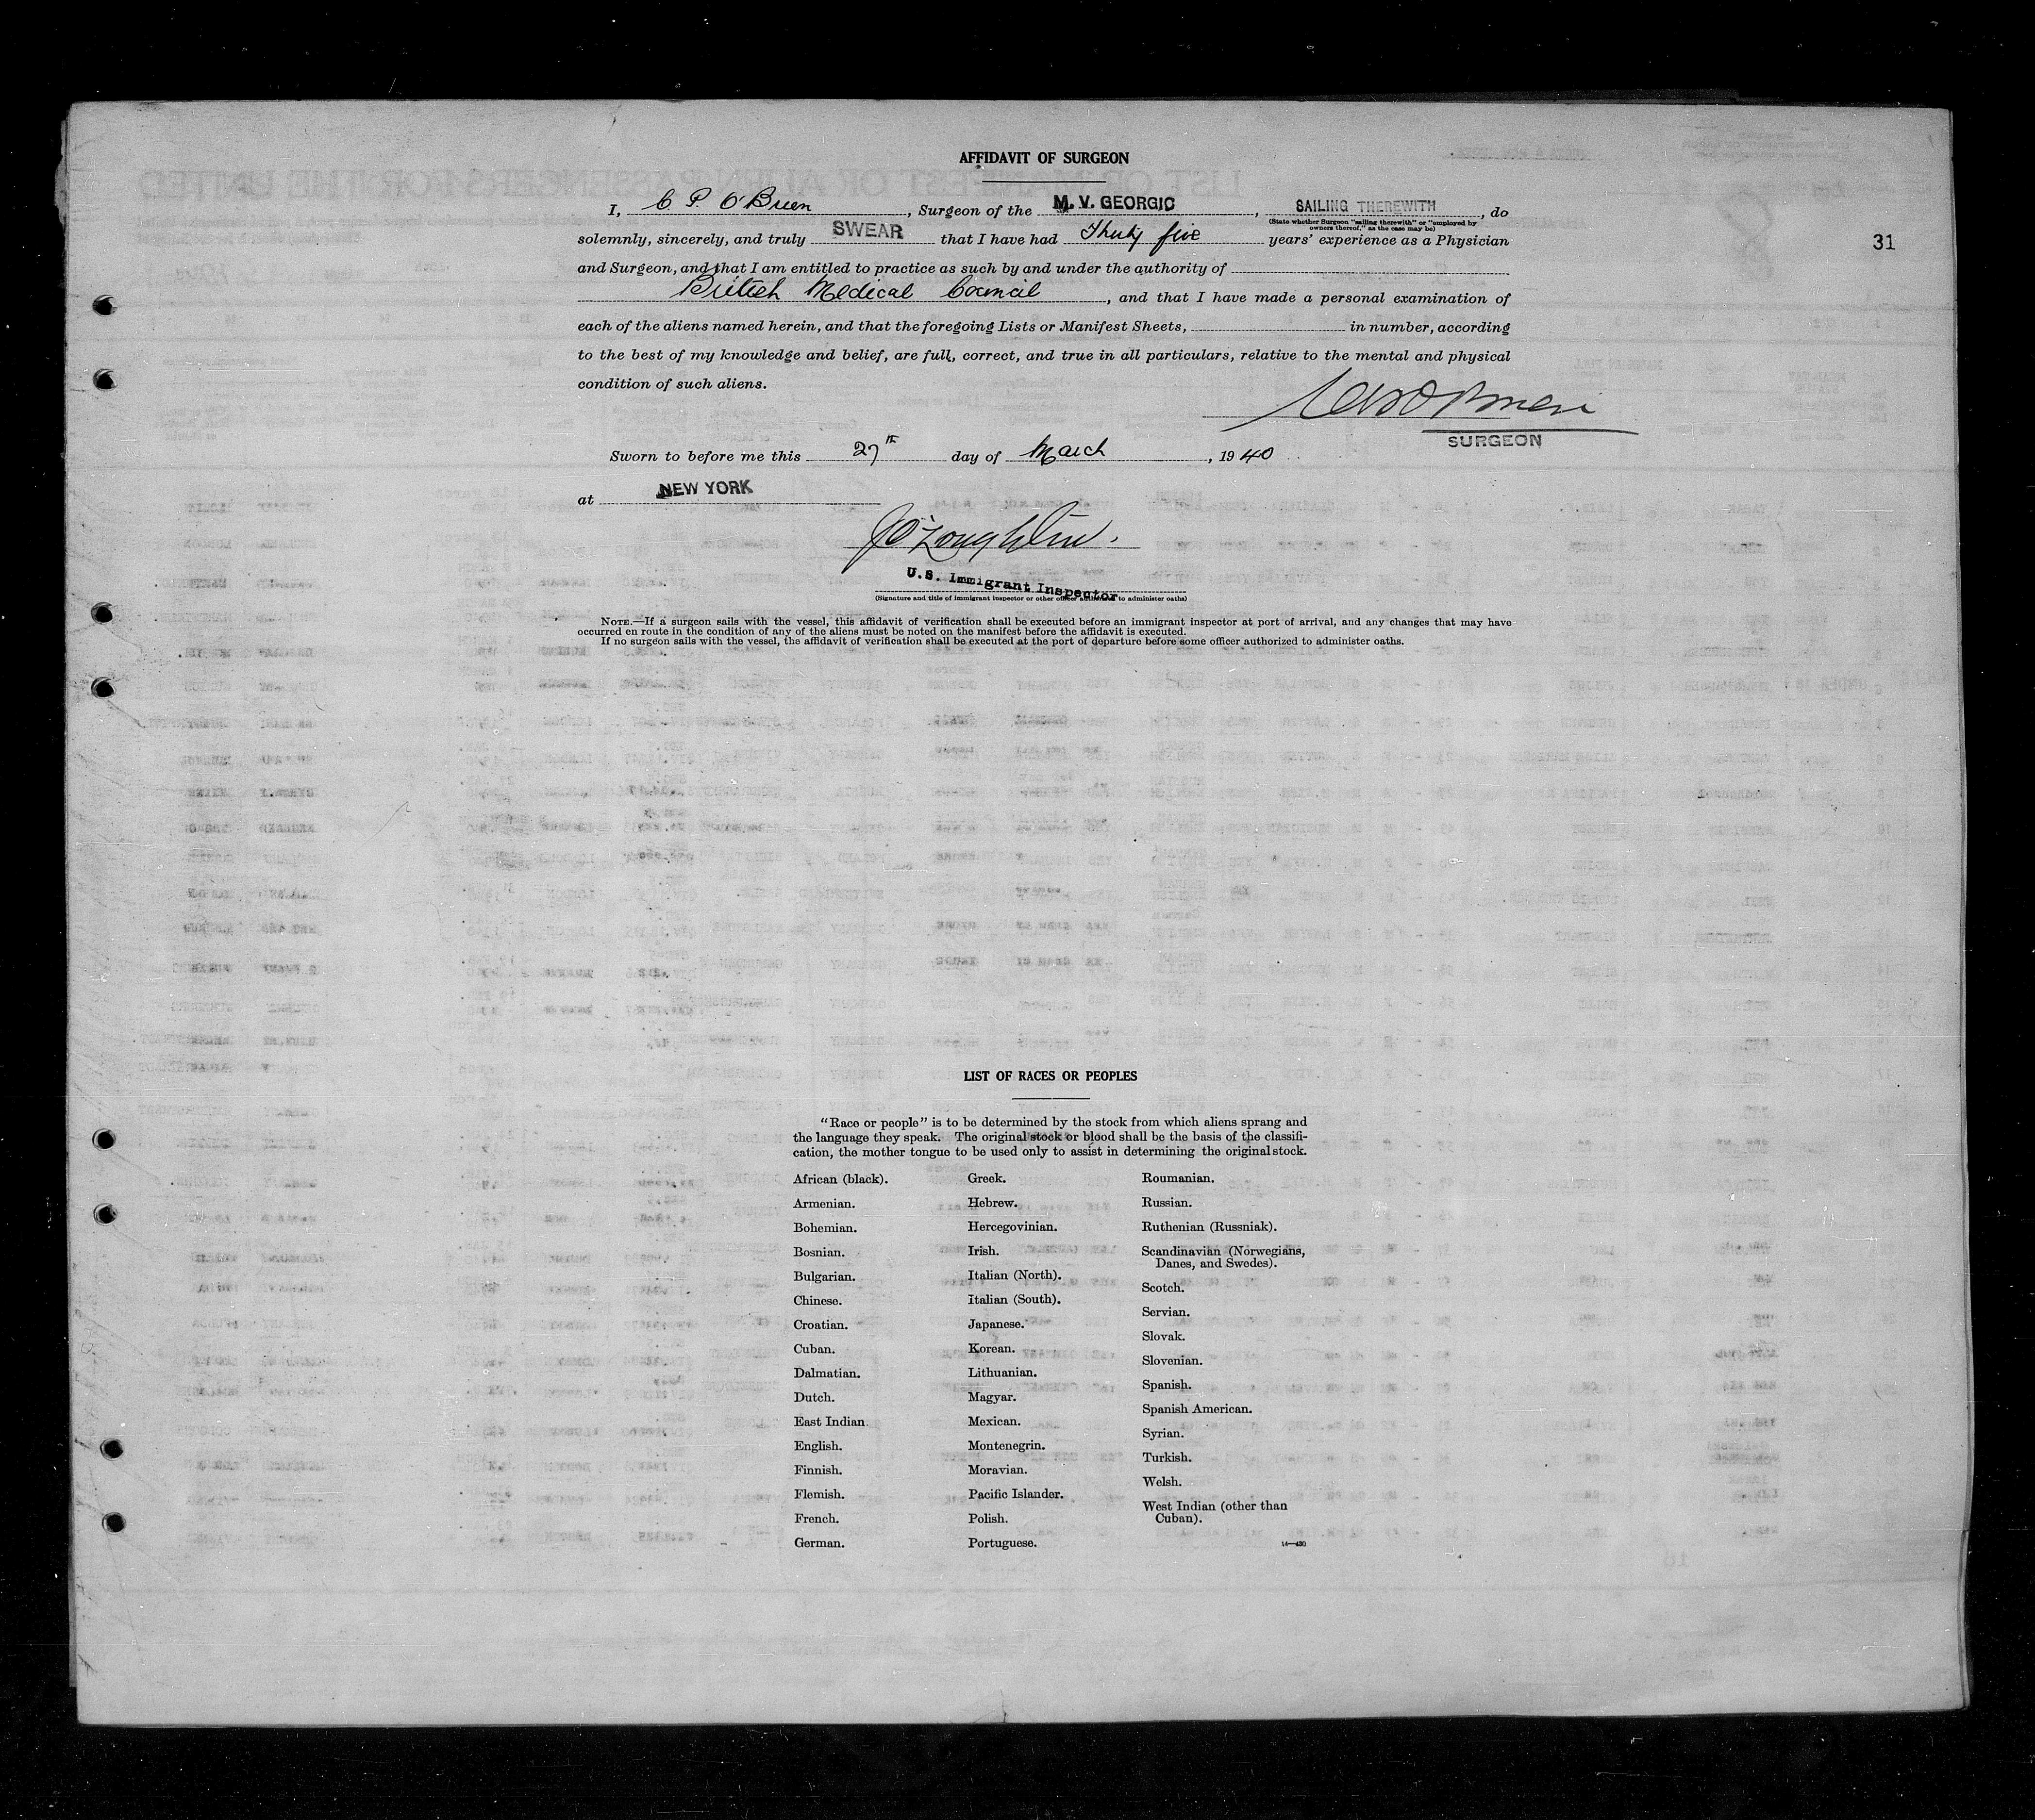 AFFIDAVIT OF SURGEON
I, C. P. O'Brien, Surgeon of the M. V. GEORGIC, SAILING THEREWITH, do
(State whether Surgeon "sailing therewith" or "employed by
owners thereof," as the case may be)
31
solemnly, sincerely, and truly SWEAR that I have had Thirty five years' experience as a Physician
and Surgeon, and that I am entitled to practice as such by and under the authority of
British Medical Council, and that I have made a personal examination of
each of the aliens named herein, and that the foregoing Lists or Manifest Sheets, in number, according
to the best of my knowledge and belief, are full, correct, and true in all particulars, relative to the mental and physical
condition of such aliens.
SURGEON
Sworn to before me this 27th day of March, 1940
at NEW YORK
J O'Loughlin.
U.S. Immigrant Inspector
(Signature and title of immigrant inspector or other officer authorized to administer oaths)
NOTE.—If a surgeon sails with the vessel, this affidavit of verification shall be executed before an immigrant inspector at port of arrival, and any changes that may have
occurred en route in the condition of any of the aliens must be noted on the manifest before the affidavit is executed.
If no surgeon sails with the vessel, the affidavit of verification shall be executed at the port of departure before some officer authorized to administer oaths.
LIST OF RACES OR PEOPLES
"Race or people" is to be determined by the stock from which aliens sprang and
the language they speak. The original stock or blood shall be the basis of the classifi-
cation, the mother tongue to be used only to assist in determining the original stock.
African (black).
Armenian.
Bohemian.
Bosnian.
Bulgarian.
Chinese.
Croatian.
Cuban.
Dalmatian.
Dutch.
East Indian.
English.
Finnish.
Flemish.
French.
German.
Greek.
Hebrew.
Hercegovinian.
Irish.
Italian (North).
Italian (South).
Japanese.
Korean.
Lithuanian.
Magyar.
Mexican.
Montenegrin.
Moravian.
Pacific Islander.
Polish.
Portuguese.
Roumanian.
Russian.
Ruthenian (Russniak).
Scandinavian (Norwegians,
Danes, and Swedes).
Scotch.
Servian.
Slovak.
Slovenian.
Spanish.
Spanish American.
Syrian.
Turkish.
Welsh.
West Indian (other than
Cuban).
14—430